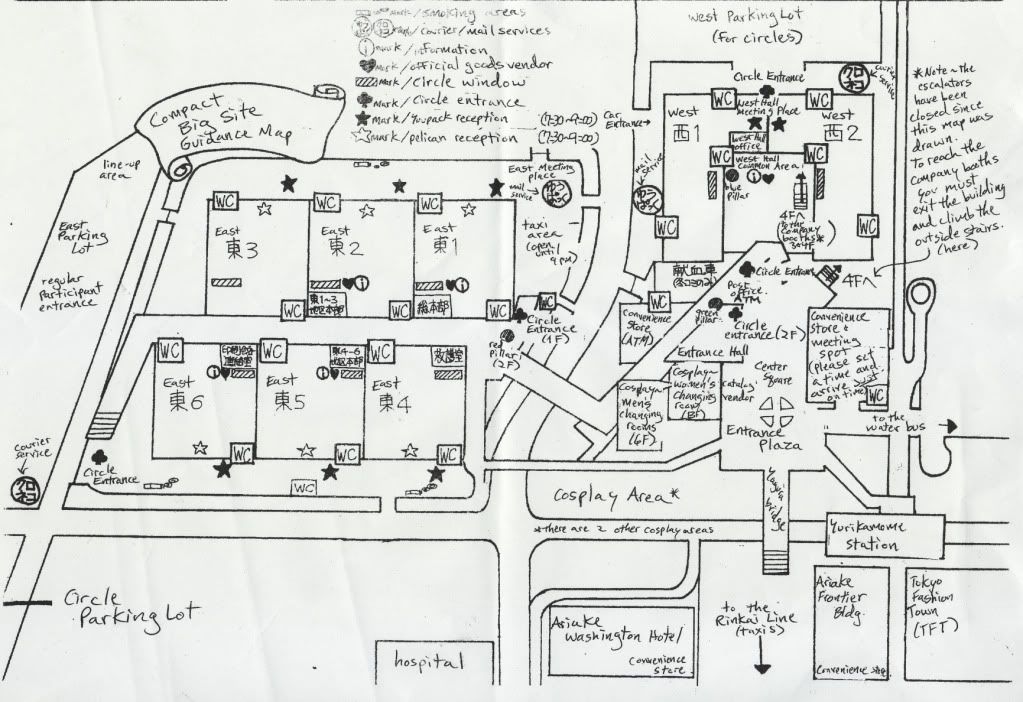 mark/smoking areas
mark/courier/mail services
mark/information
mark/official goods vendor
mark/circle window
mark/circle entrance
mark/Youpack reception (7:30~9:00)
mark/pelican reception (7:30~9:00)
Compact
Big Site
Guidance Map
line-up
area
East
Parking
Lot
regular
participant
entrance
East Meeting
place
mail
service
ゆうぱっく
taxi
area
(open
until
9pm)
WC
East
東3
WC
East
東2
WC
East
東1
WC
東1~3
地区本部
WC
総本部
WC
WC
Circle
Entrance
(1F)
red
pillar
(2F)
WC
East
東6
WC
East
東5
東4-6
地区本部
WC
East
東4
救護室
WC
WC
WC
WC
Circle
Entrance
courier
service
クロネコ
Circle
Parking Lot
West Parking Lot
(for circles)
Car
Entrance→
Circle Entrance
courier
service
クロネコ
WC
WC
West Hall
Meeting Place
West
西1
West
西2
West Hall
office
WC
WC
West Hall
Common Area
blue
pillar
mail
service
ゆうぱっく
4F^
to the
company
booths*
WC
WC
*Note~the
escalators
have been
closed since
this map was
drawn.
to reach the
company booths
you must
exit the building
and climb the
outside stairs.
(here)
4F^
献血車
Circle Entrance
post
office.
ATM
green
pillar
Circle
entrance(2F)
WC
Convenience
Store
(ATM)
Entrance Hall
Convenience
Store &
meeting
spot
(please set
a time and
arrive just
on time)
WC
Cosplay
mens
changing
rooms
(6F)
Cosplay
women's
changing
room
catalog
vendor
Center
Square
Entrance
Plaza
to the
water bus
Cosplay Area*
*there are 2 other cosplay areas
bridge
Yurikamome
Station
Ariake
Washington Hotel
Convenience
store
hospital
to the
Rinkai Line
(taxis)
Ariake
Frontier
Bldg.
Convenience store
Tokyo
Fashion
Town
(TFT)